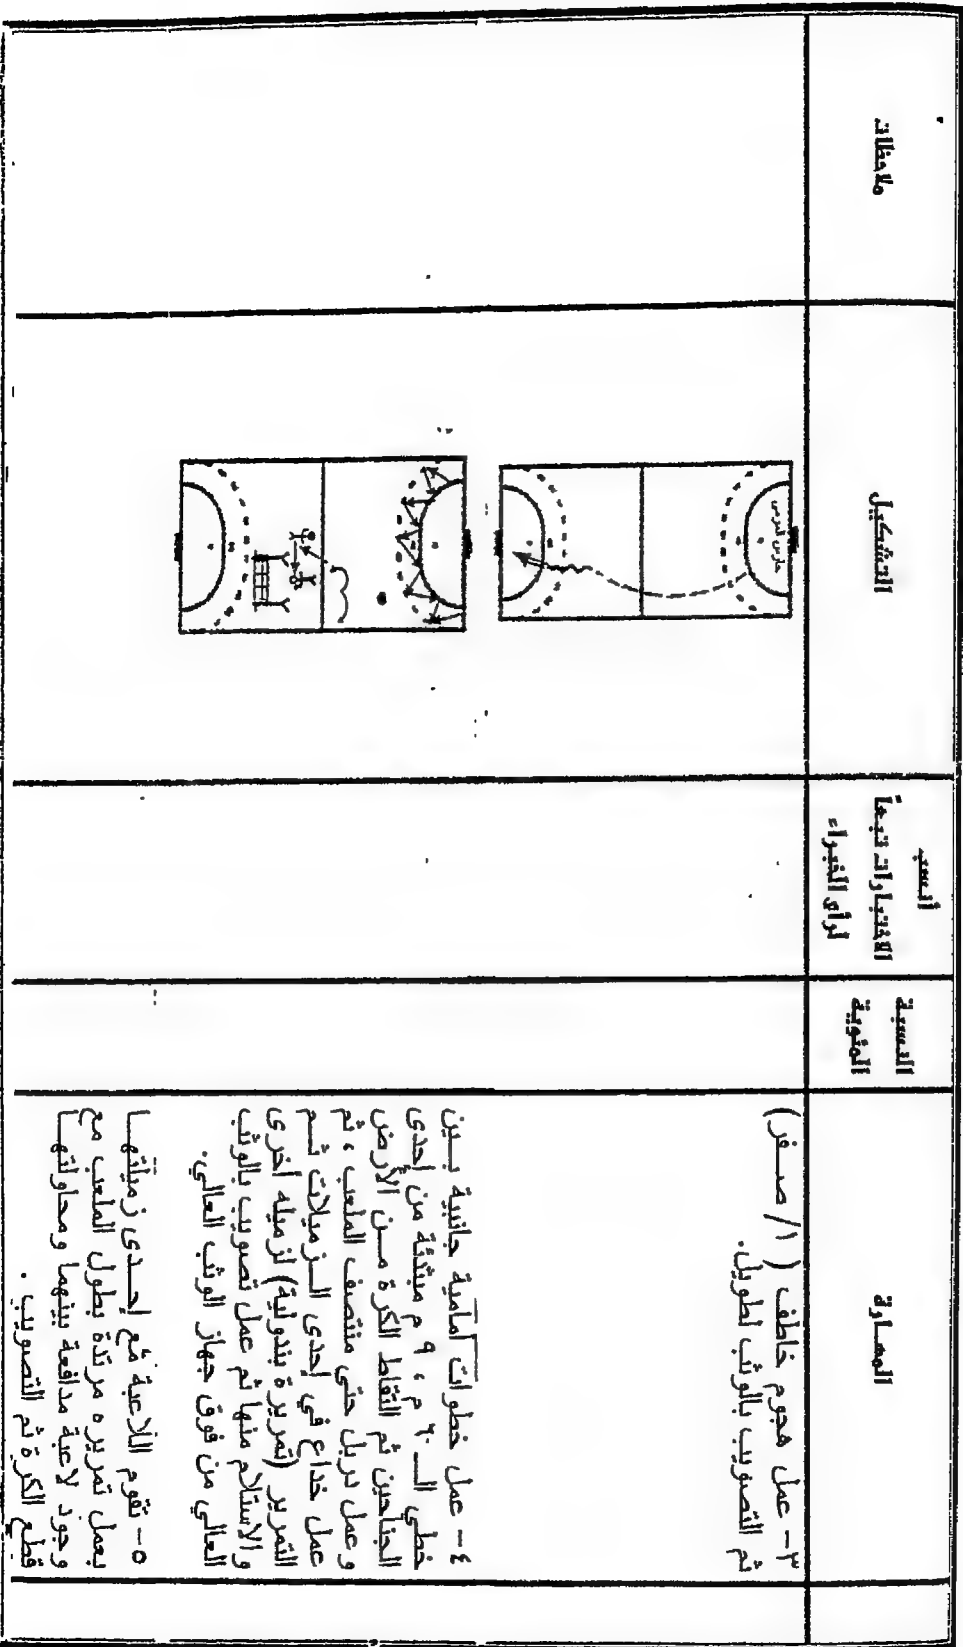 المهارة
النسبة
المئوية
أنسب
الاختبارات تبعاً
لرأي الخبراء
التشكيل
ملاحظات
٣- عمل هجوم خاطف ( ١/ صـفر)
ثم التصويب بالوثب لطويل.
حارس المرمى
٤- عمل خطوات أمامية جانبية بـين
خطي الـ ٦٠ م ، ٩ م مبتدئة من إحدى
الجناحين ثم التقاط الكرة مـن الأرض
وعمل دربل حتى منتصف الملعب ، ثم
عمل خداع في إحدى الـزميلات ثـم
التمرير (تمريرة بندولية) لزميله أخرى
والاستلام منها ثم عمل تصويب بالوثب
العالي من فوق جهاز الوثب العالي.
٥- تقوم اللاعبة مع إحـدى زميلتهـا
بعمل تمريره مرتدة بطول الملعب مع
وجود لاعبة مدافعة بينهما ومحاولتهـا
قطع الكرة ثم التصويب .